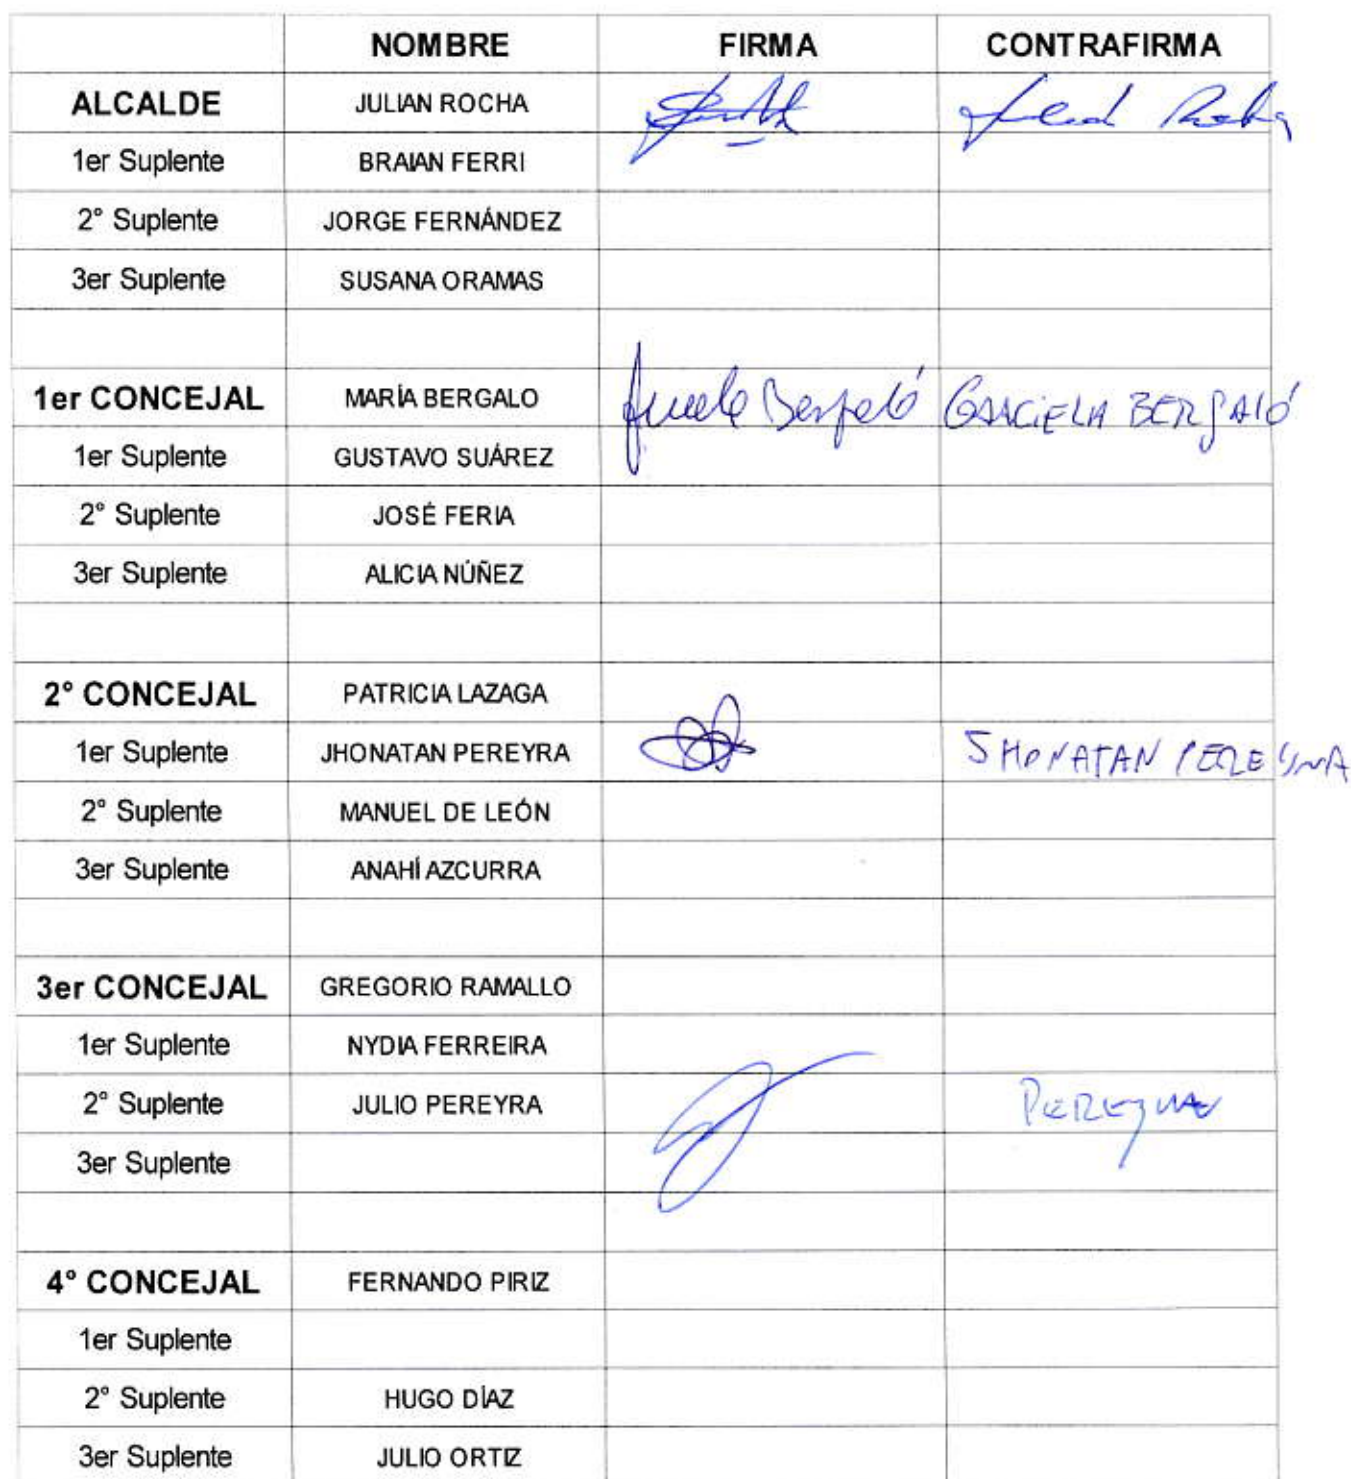 NOMBRE FIRMA CONTRAFIRMA
ALCALDE JULIAN ROCHA Rocha
1er Suplente BRAIAN FERRI
2° Suplente JORGE FERNÁNDEZ
3er Suplente SUSANA ORAMAS
1er CONCEJAL MARÍA BERGALO Bergaló GRACIELA BERGALÓ
1er Suplente GUSTAVO SUÁREZ
2° Suplente JOSÉ FERIA
3er Suplente ALICIA NÚÑEZ
2° CONCEJAL PATRICIA LAZAGA
1er Suplente JHONATAN PEREYRA JHONATAN PEREYRA
2° Suplente MANUEL DE LEÓN
3er Suplente ANAHÍ AZCURRA
3er CONCEJAL GREGORIO RAMALLO
1er Suplente NYDIA FERREIRA
2° Suplente JULIO PEREYRA PEREYRA
3er Suplente
4° CONCEJAL FERNANDO PIRIZ
1er Suplente
2° Suplente HUGO DÍAZ
3er Suplente JULIO ORTIZ